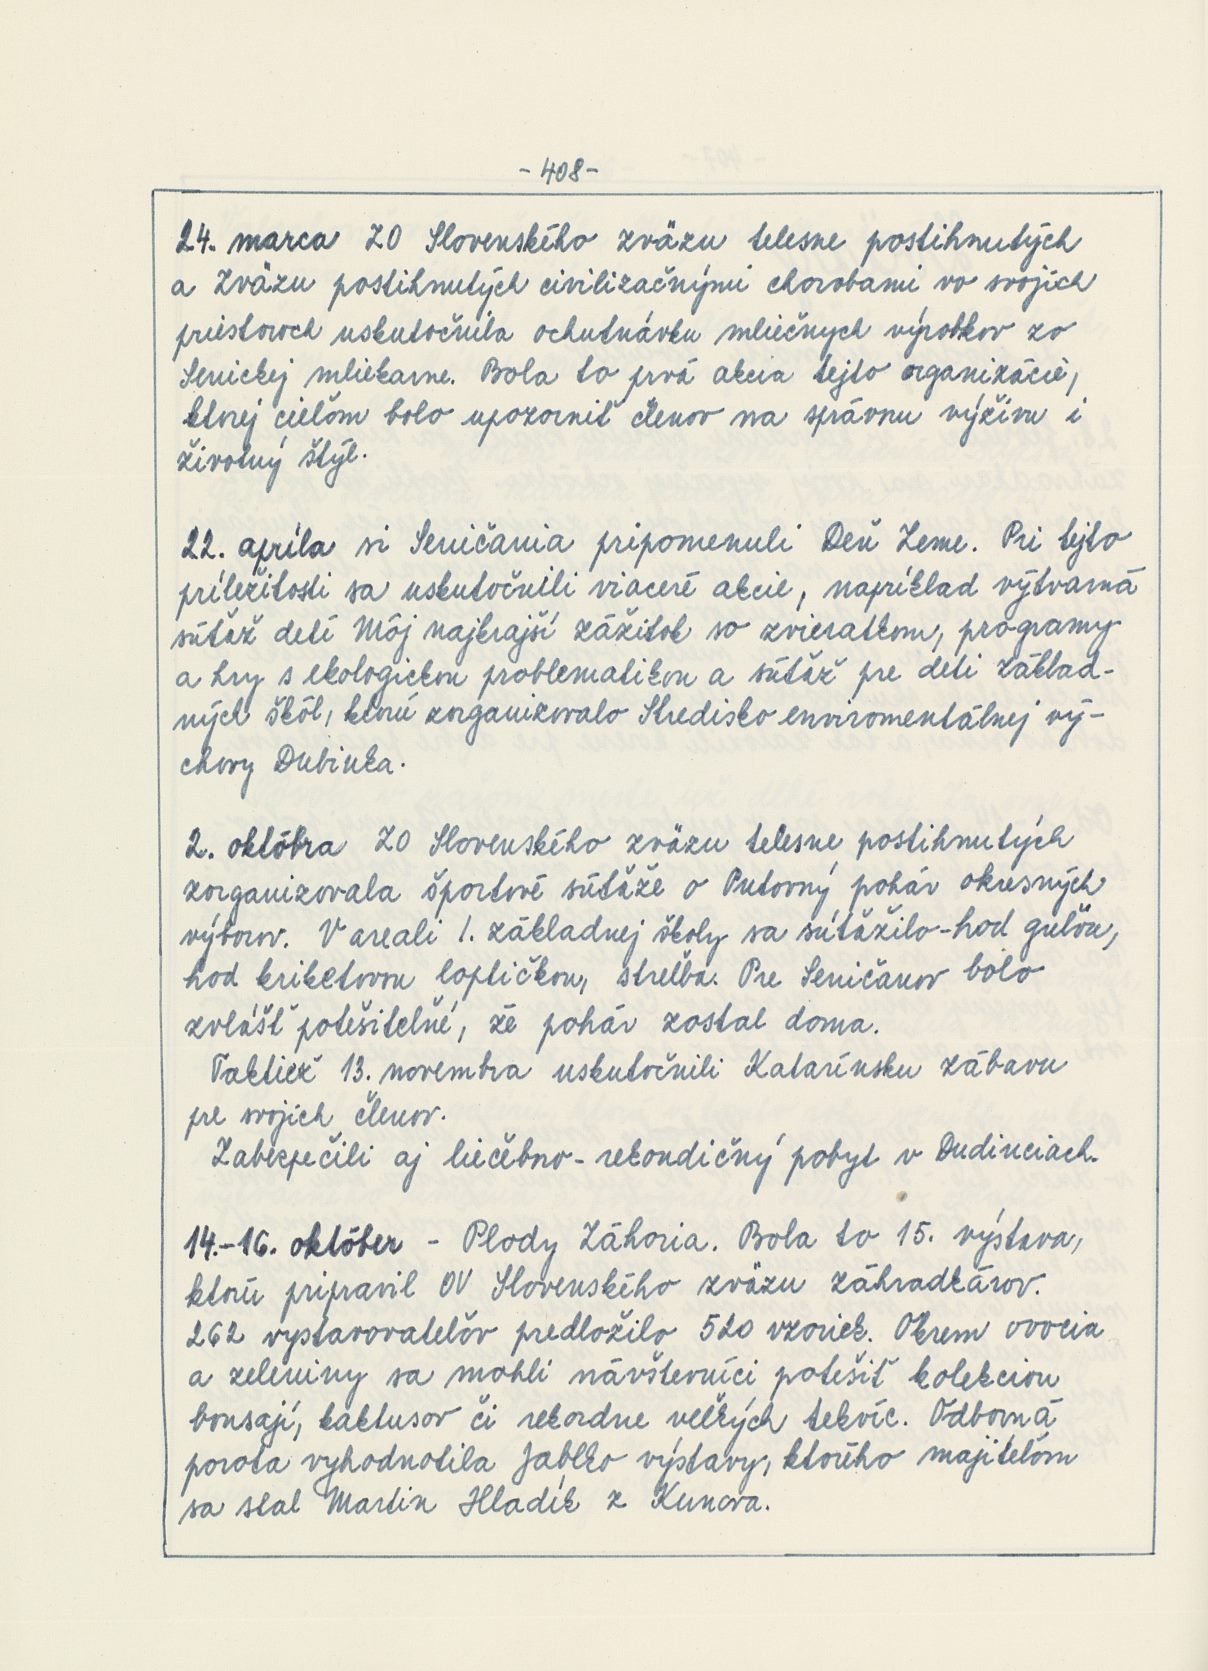 - 408 -
24. marca ZO Slovenského zväzu telesne postihnutých
a Zväzu postihnutých civilizačnými chorobami vo svojich
priestoroch uskutočnila ochutnávku mliečnych výrobkov zo
Senickej mliekarne. Bola to prvá akcia tejto organizácie,
ktorej cieľom bolo upozorniť členov na správnu výživu i
životný štýl.
22. apríla si Seničania pripomenuli Deň Zeme. Pri tejto
príležitosti sa uskutočnili viaceré akcie, napríklad výtvarná
súťaž detí Môj najkrajší zážitok so zvieratkom, programy
a hry s ekologickou problematikou a súťaž pre deti základ-
ných škôl, ktorú zorganizovalo Stredisko enviromentálnej vý-
chovy Dubinka.
2. októbra ZO Slovenského zväzu telesne postihnutých
zorganizovala športové súťaže o Putovný pohár okresných
výborov. V areali 1. základnej školy sa súťažilo - hod guľou,
hod kriketovou loptičkou, streľba. Pre Seničanov bolo
zvlášť potešiteľné, že pohár zostal doma.
Taktiež 13. novembra uskutočnili Katarínsku zábavu
pre svojich členov.
Zabezpečili aj liečebno - rekondičný pobyt v Dudinciach.
14.-16. október - Plody Záhoria. Bola to 15. výstava,
ktorú pripravil OV Slovenského zväzu záhradkárov.
262 vystavovateľov predložilo 520 vzoriek. Okrem ovocia
a zeleniny sa mohli návštevníci potešiť kolekciou
bonsají, kaktusov či rekordne veľkých tekvíc. Odborná
porota vyhodnotila Jablko výstavy, ktorého majiteľom
sa stal Martin Hladík z Kunova.